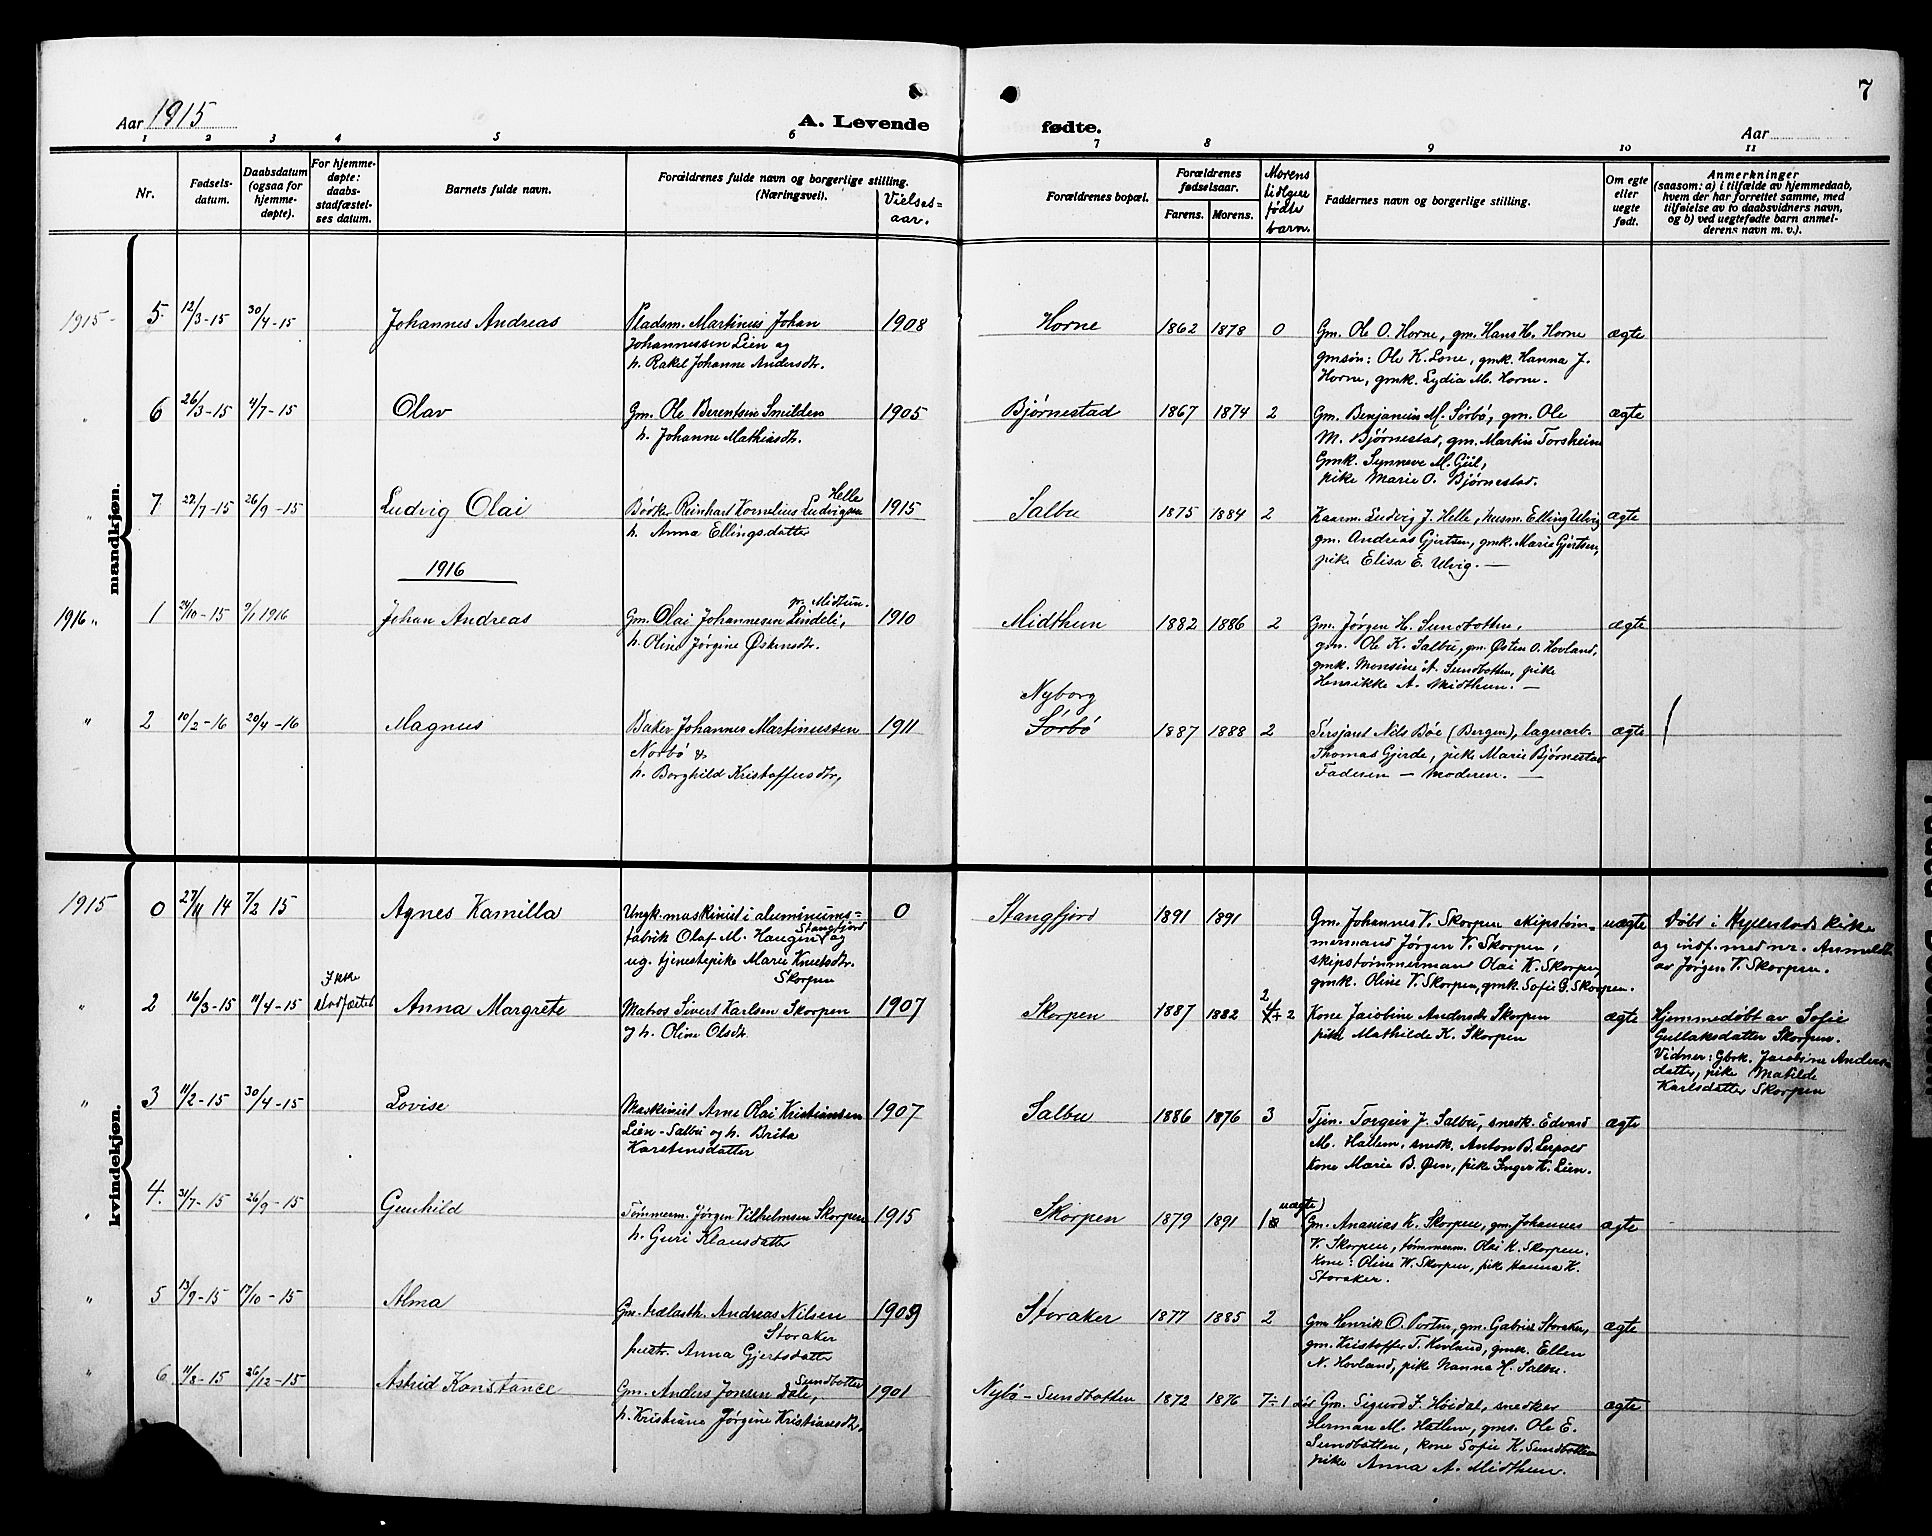 7
Aar 1915
A. Levende
fødte.
Aar
1 2 3 4 5 6 7 8 9 10 11
Nr.
Fødsels-
datum.
Daabsdatum
(ogsaa for
hjemme-
døpte).
For hjemme-
døpte:
daabs-
stadfæstel-
ses datum.
Barnets fulde navn.
Forældrenes fulde navn og borgerlige stilling.
(Næringsvei).
Vielses=
aar.
Forældrenes bopæl.
Forældrenes
fødselsaar.
Farens. Morens.
Morens
tidligere
fødte
barn.
Faddernes navn og borgerlige stilling.
Om egte
eller
uegte
født.
Anmerkninger
(saasom: a) i tilfælde av hjemmedaab,
hvem der har forrettet samme, med
tilføielse av to daabsvidners navn,
og b) ved uegtefødte barn anmel-
derens navn m. v.).
mandkjøn.
1915 - 5 12/3-15 30/4-15 Johannes Andreas
Pladsm. Martinus Johan
Johannessen Lien og
h. Rakel Johanne Andersdtr.
1908 Horne 1862 1878 0
Gm. Ole O. Horne, gm. Hans H. Horne
gmsøn: Ole K. Lone, gmk. Hanna J.
Horne, gmk. Lydia M. Horne.
ægte
" 6 26/3-15 4/7-15 Olav
Gm. Ole Berentsen Smilden
h. Johanne Mathiasdtr.
1905 Bjørnestad 1867 1874 2
Gm. Benjamin M. Sørbö, gm. Ole
M. Bjørnestad, gm. Martin Torsheim
Gmk. Synneve M. Giil,
pike Marie O. Bjørnestad.
ægte
" 7 22/7-15 26/9-15 Ludvig Olai
Helle
Bødker Reinhart Kornelius Ludvigsen
h. Anna Ellingsdatter
1915 Salbu 1875 1884 2
Kaarm. Ludvig J. Helle, husm. Elling Ulvig
gm. Andreas Gjertsen, gmk. Marie Gjertsen,
pike Elisa E. Ulvig. —
ægte
1916
1916 " 1 24/10-15 9/1 1916 Johan Andreas
pr. Midtun.
Gm. Olai Johannesen Lindeli,
h. Oline Jørgine Østensdtr.
1910 Midthun 1882 1886 2
Gm. Jørgen H. Sundbotten,
gm. Ole K. Salbu, gm. Østen O. Hovland,
gmk. Monsine A. Sundbotten, pike
Henrikke A. Midthun. —
ægte
" 2 10/2-16 20/4-16 Magnus
Baker Johannes Martinussen
Norbö &
h. Borghild Kristoffersdtr,
1911
Nyborg
Sørbö
1887 1888 2
Sersjant Nils Böe (Bergen), lagerarb.
Thomas Gjerde, pike Marie Bjørnestad
Faderen — Moderen. —
ægte
kvindekjøn.
1915 0 27/11 14 7/2 15 Agnes Kamilla
Ungk. maskinist i aluminiums=
fabrik Olaf M. Haugen Stangfjord og
ug. tjenestepike Marie Knutsdtr.
Skorpen
0 Stangfjord 1891 1891
Gm. Johannes V. Skorpen skipstøm-
mermand Jørgen V. Skorpen,
skipstømmermand Olai K. Skorpen
gmk. Oline V. Skorpen, gmk. Sofie G. Skorpen.
uægte
Døbt i Hyllestads kirke
og indf. med nr. Anmeldt
av Jørgen V. Skorpen.
" 2 16/3-15 11/4-15
Ikke
stadfæstet
Anna Margrete
Matros Sivert Karlsen Skorpen
og h. Oline Olsdtr.
1907 Skorpen 1887 1882 2
Kone Jacobine Andersdtr Skorpen
pike Mathilde K. Skorpen
ægte
Hjemmedøbt av Sofie
Gullaksdatter Skorpen.
Vidner: Gbrk. Jacobine Anders-
datter, pike Matilde
Karlsdatter Skorpen
" 3 11/2-15 30/4-15 Lovise
Maskinist Arne Olai Kristiansen
Lien - Salbu og h. Brita
Karstensdatter
1907 Salbu 1886 1876 3
Tjen. Torgeir J. Salbu, snedk. Edvard
M. Hatlem, snedk. Anton B. Lepold
Kone Marie B. Øen, pike Inger K. Lien.
ægte
" 4. 31/7-15 26/9-15 Gunhild
Tømmerm. Jørgen Vilhelmsen Skorpen
h. Guri Klausdatter
1915 Skorpen 1879 1891 1 uægte
Gm. Ananias K. Skorpen, gm. Johannes
V. Skorpen, tømmerm. Olai K. Skorpen.
Kone: Oline W. Skorpen, pike Hanna K.
Storaker.
ægte
" 5 13/9-15 17/10-15 Alma
Gm. Andreas Nilsen
Storaker
hustr. Anna Gjertsdatter
1909 Storaker 1877 1885 2
Gm Henrik O. Porten, gm. Gabriel Storaker,
gm. Kristoffer T. Hovland, gmk. Ellen
N. Hovland, pike Nanna H. Salbu.
ægte
" 6 11/8-15 26/12-15 Astrid Konstance
Sundbotten
Gm. Anders Jonsen Dale,
h. Kristiane Jørgine Kristiansdtr.
1901 Nybö - Sundbotten 1872 1876 7 ÷ 1 död
Gm. Sigurd J. Höidal, snedker
Herman M. Hatlem, gms. Ole E.
Sundbotten, kone Sofie K. Sundbotten
pike Anna A. Midthun.
ægte